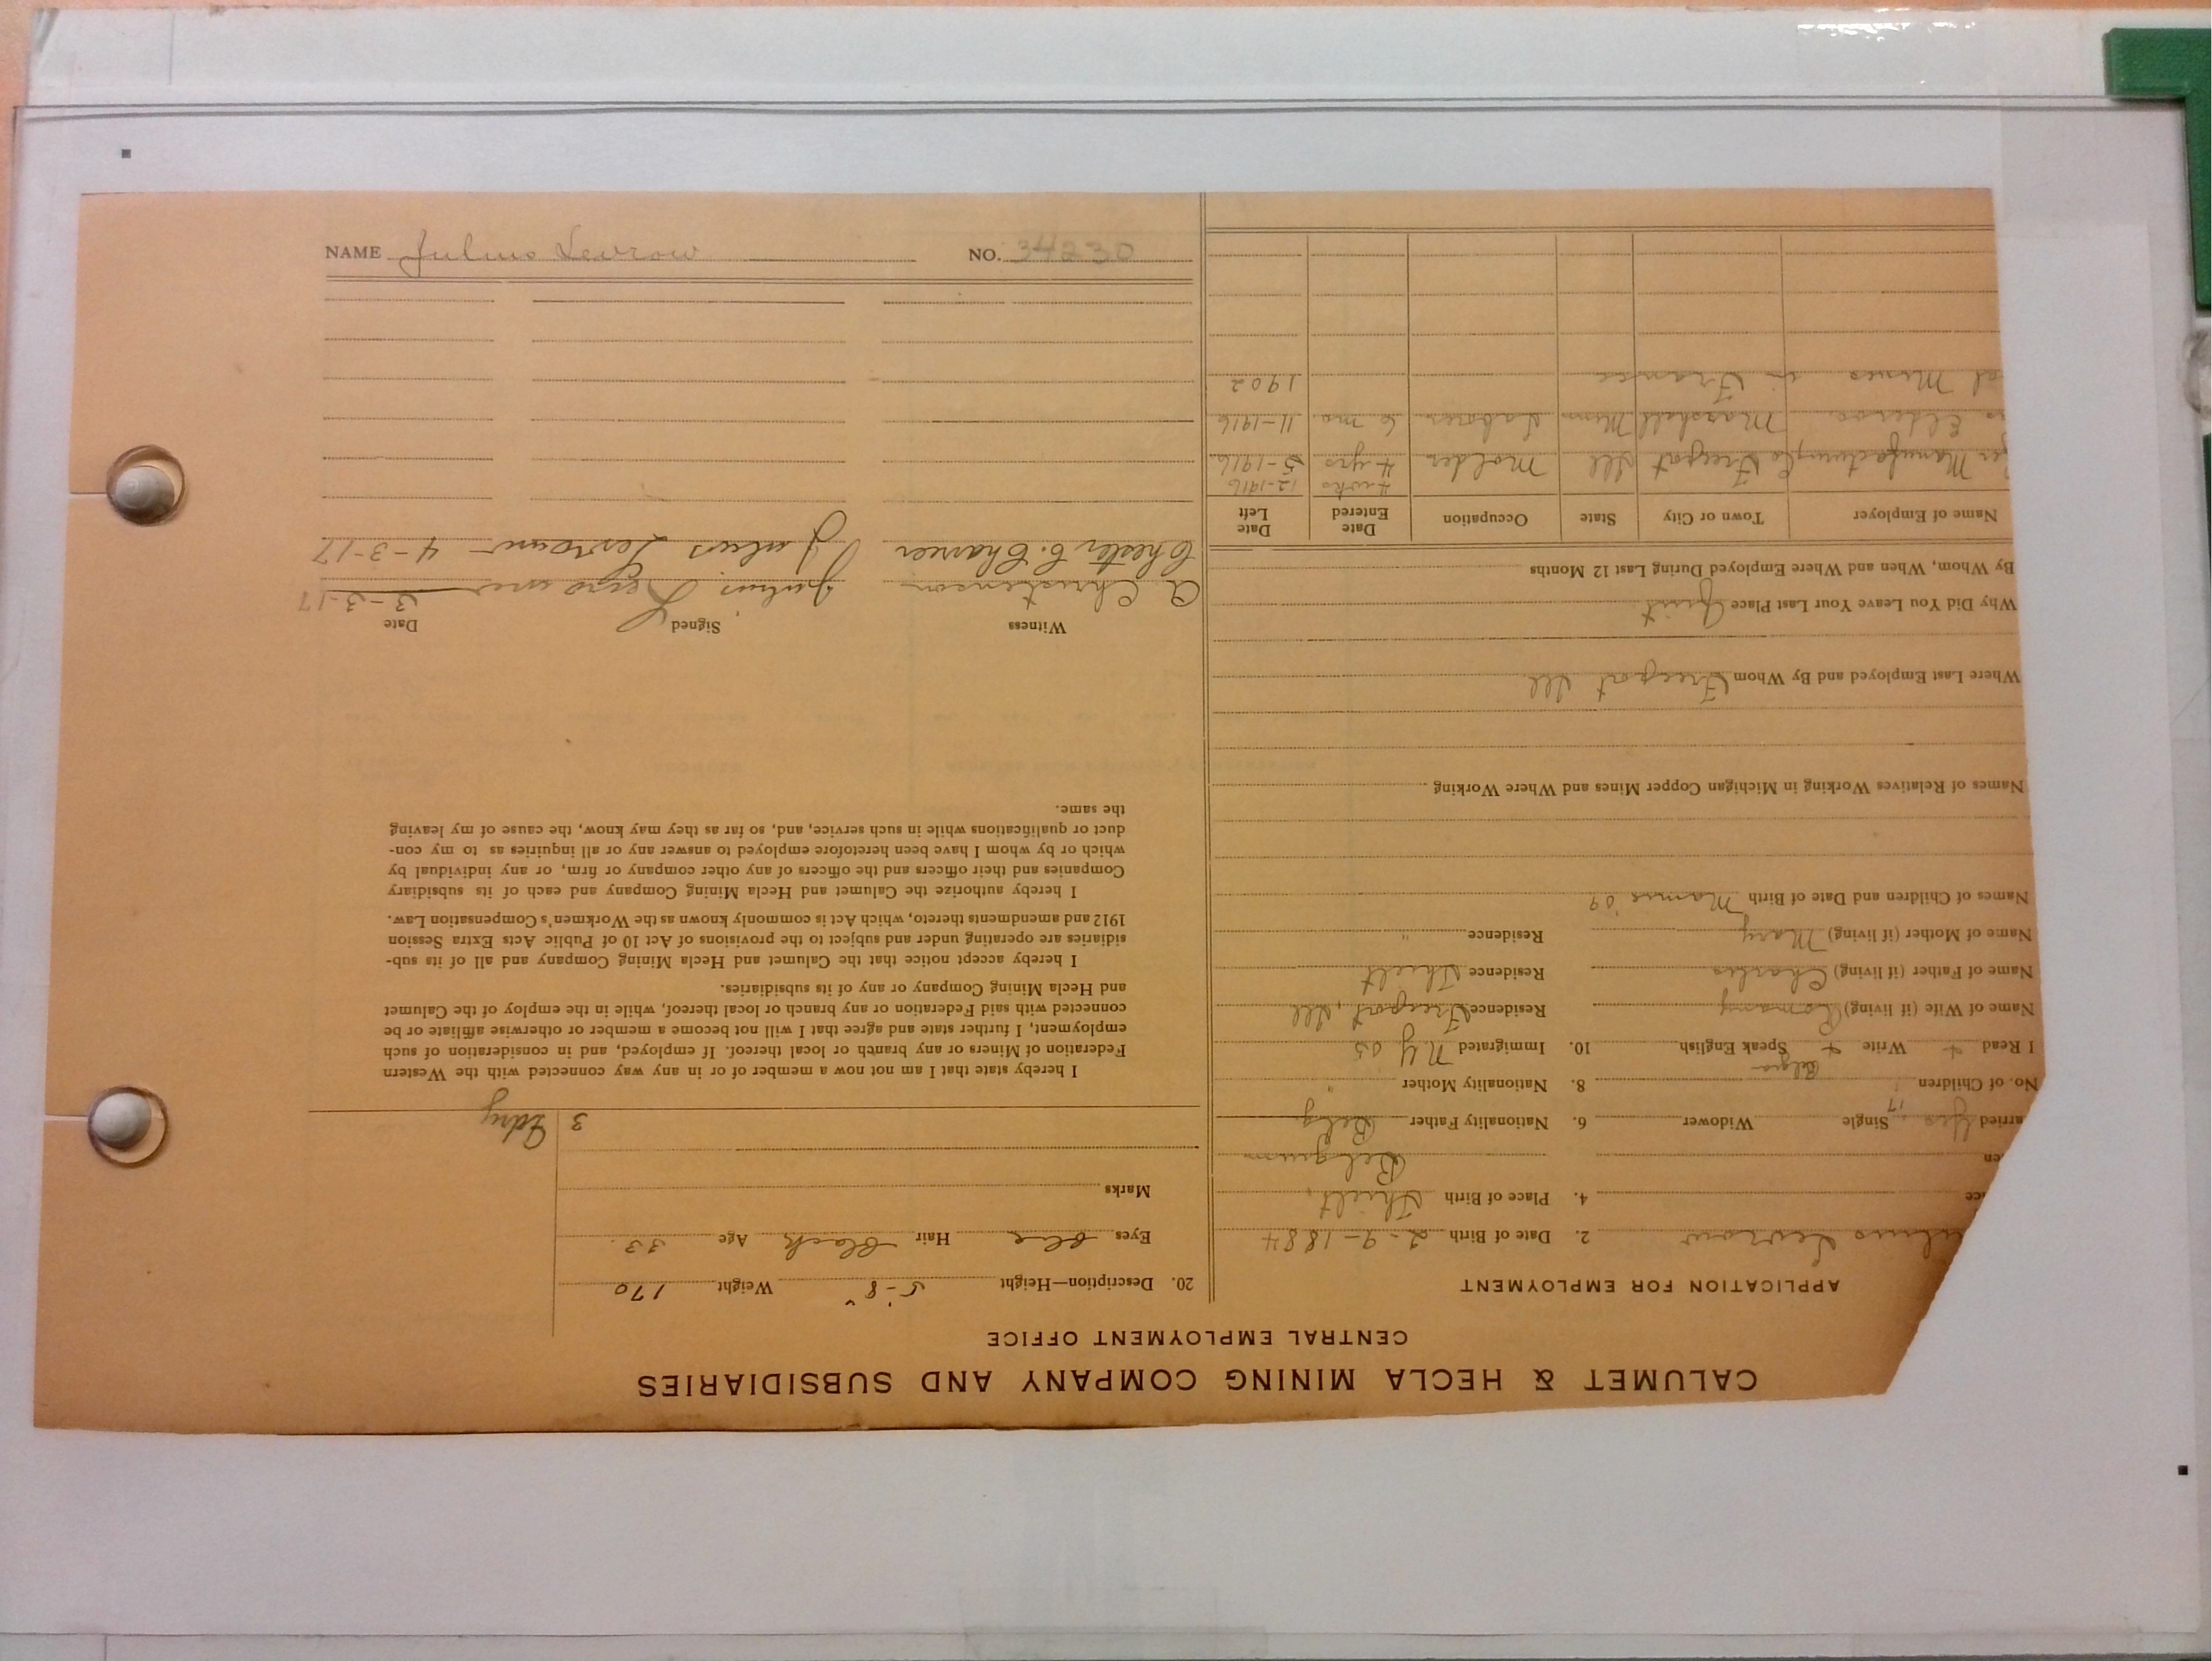 CALUMET & HECLA MINING COMPANY AND SUBSIDIARIES
CENTRAL EMPLOYMENT OFFICE
APPLICATION FOR EMPLOYMENT
ulius Levrow 2. Date of Birth 2-9-1884
ice 4. Place of Birth Thielt,
en Belgium
arried Yes, 17 Single Widower 6. Nationality Father Belg
No. of Children 1 8. Nationality Mother "
I Read + Write + Speak English 10. Immigrated N.Y 05
Name of Wife (if living) Residence Freeport, Ill
Name of Father (if living) Charles Residence Thielt
Name of Mother (if living) Mary Residence "
Names of Children and Date of Birth Mamie '09
Names of Relatives Working in Michigan Copper Mines and Where Working
Where Last Employed and By Whom Freeport Ill
Why Did You Leave Your Last Place Quit
By Whom, When and Where Employed During Last 12 Months
Name of Employer Town or City State Occupation Date Entered Date Left
4 wks 12-1916
Manufacturing Co Freeport Ill Molder 4 yrs 5-1916
Marshall Minn Laborer 6 mo. 11-1916
al Mines in France 1902
20. Description—Height 5'-8" Weight 170
Eyes blue Hair Black Age 33.
Marks
3 Fdry
I hereby state that I am not now a member of or in any way connected with the Western
Federation of Miners or any branch or local thereof. If employed, and in consideration of such
employment, I further state and agree that I will not become a member or otherwise affiliate or be
connected with said Federation or any branch or local thereof, while in the employ of the Calumet
and Hecla Mining Company or any of its subsidiaries.
I hereby accept notice that the Calumet and Hecla Mining Company and all of its sub-
sidiaries are operating under and subject to the provisions of Act 10 of Public Acts Extra Session
1912 and amendments thereto, which Act is commonly known as the Workmen's Compensation Law.
I hereby authorize the Calumet and Hecla Mining Company and each of its subsidiary
Companies and their officers and the officers of any other company or firm, or any individual by
which or by whom I have been heretofore employed to answer any or all inquiries as to my con-
duct or qualifications while in such service, and, so far as they may know, the cause of my leaving
the same.
Witness Signed Date
A Christenson Julius 3-3-17
Chester C. Julius 4-3-17
NAME Julius Levrow NO. 34230